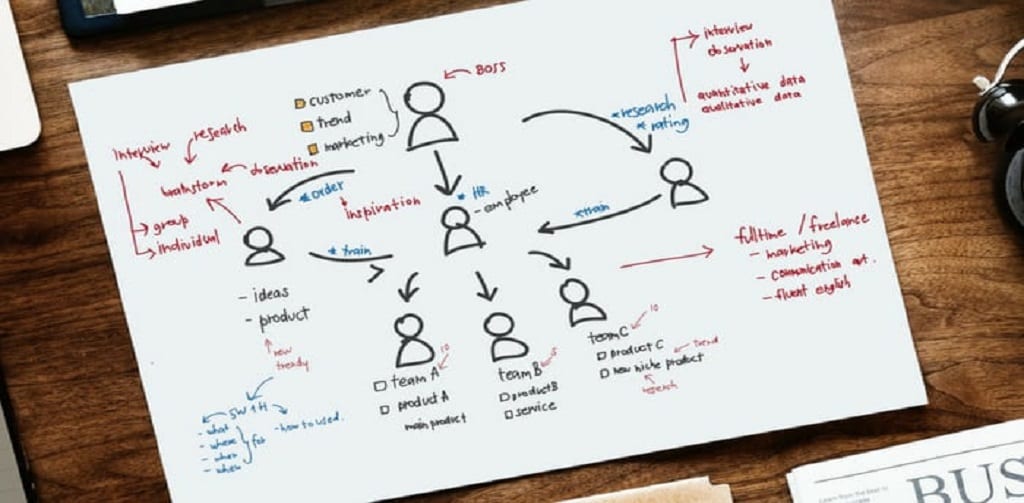 BOSS
customer
trend
marketing
interview
observation
quantitative data
qualitative data
*research
*rating
research
Interview
observation
brainstorm
group
individual
*order
inspiration
* HR
- employee
*train
* train
- ideas
- product
new
trendy
fulltime / freelance
- marketing
- communication
- fluent english
10
team A
product A
main product
team B
product B
service
10
team C
product C
trend
new niche product
research
5W1H
- what
- where
- when
for
- how to used.
BUS